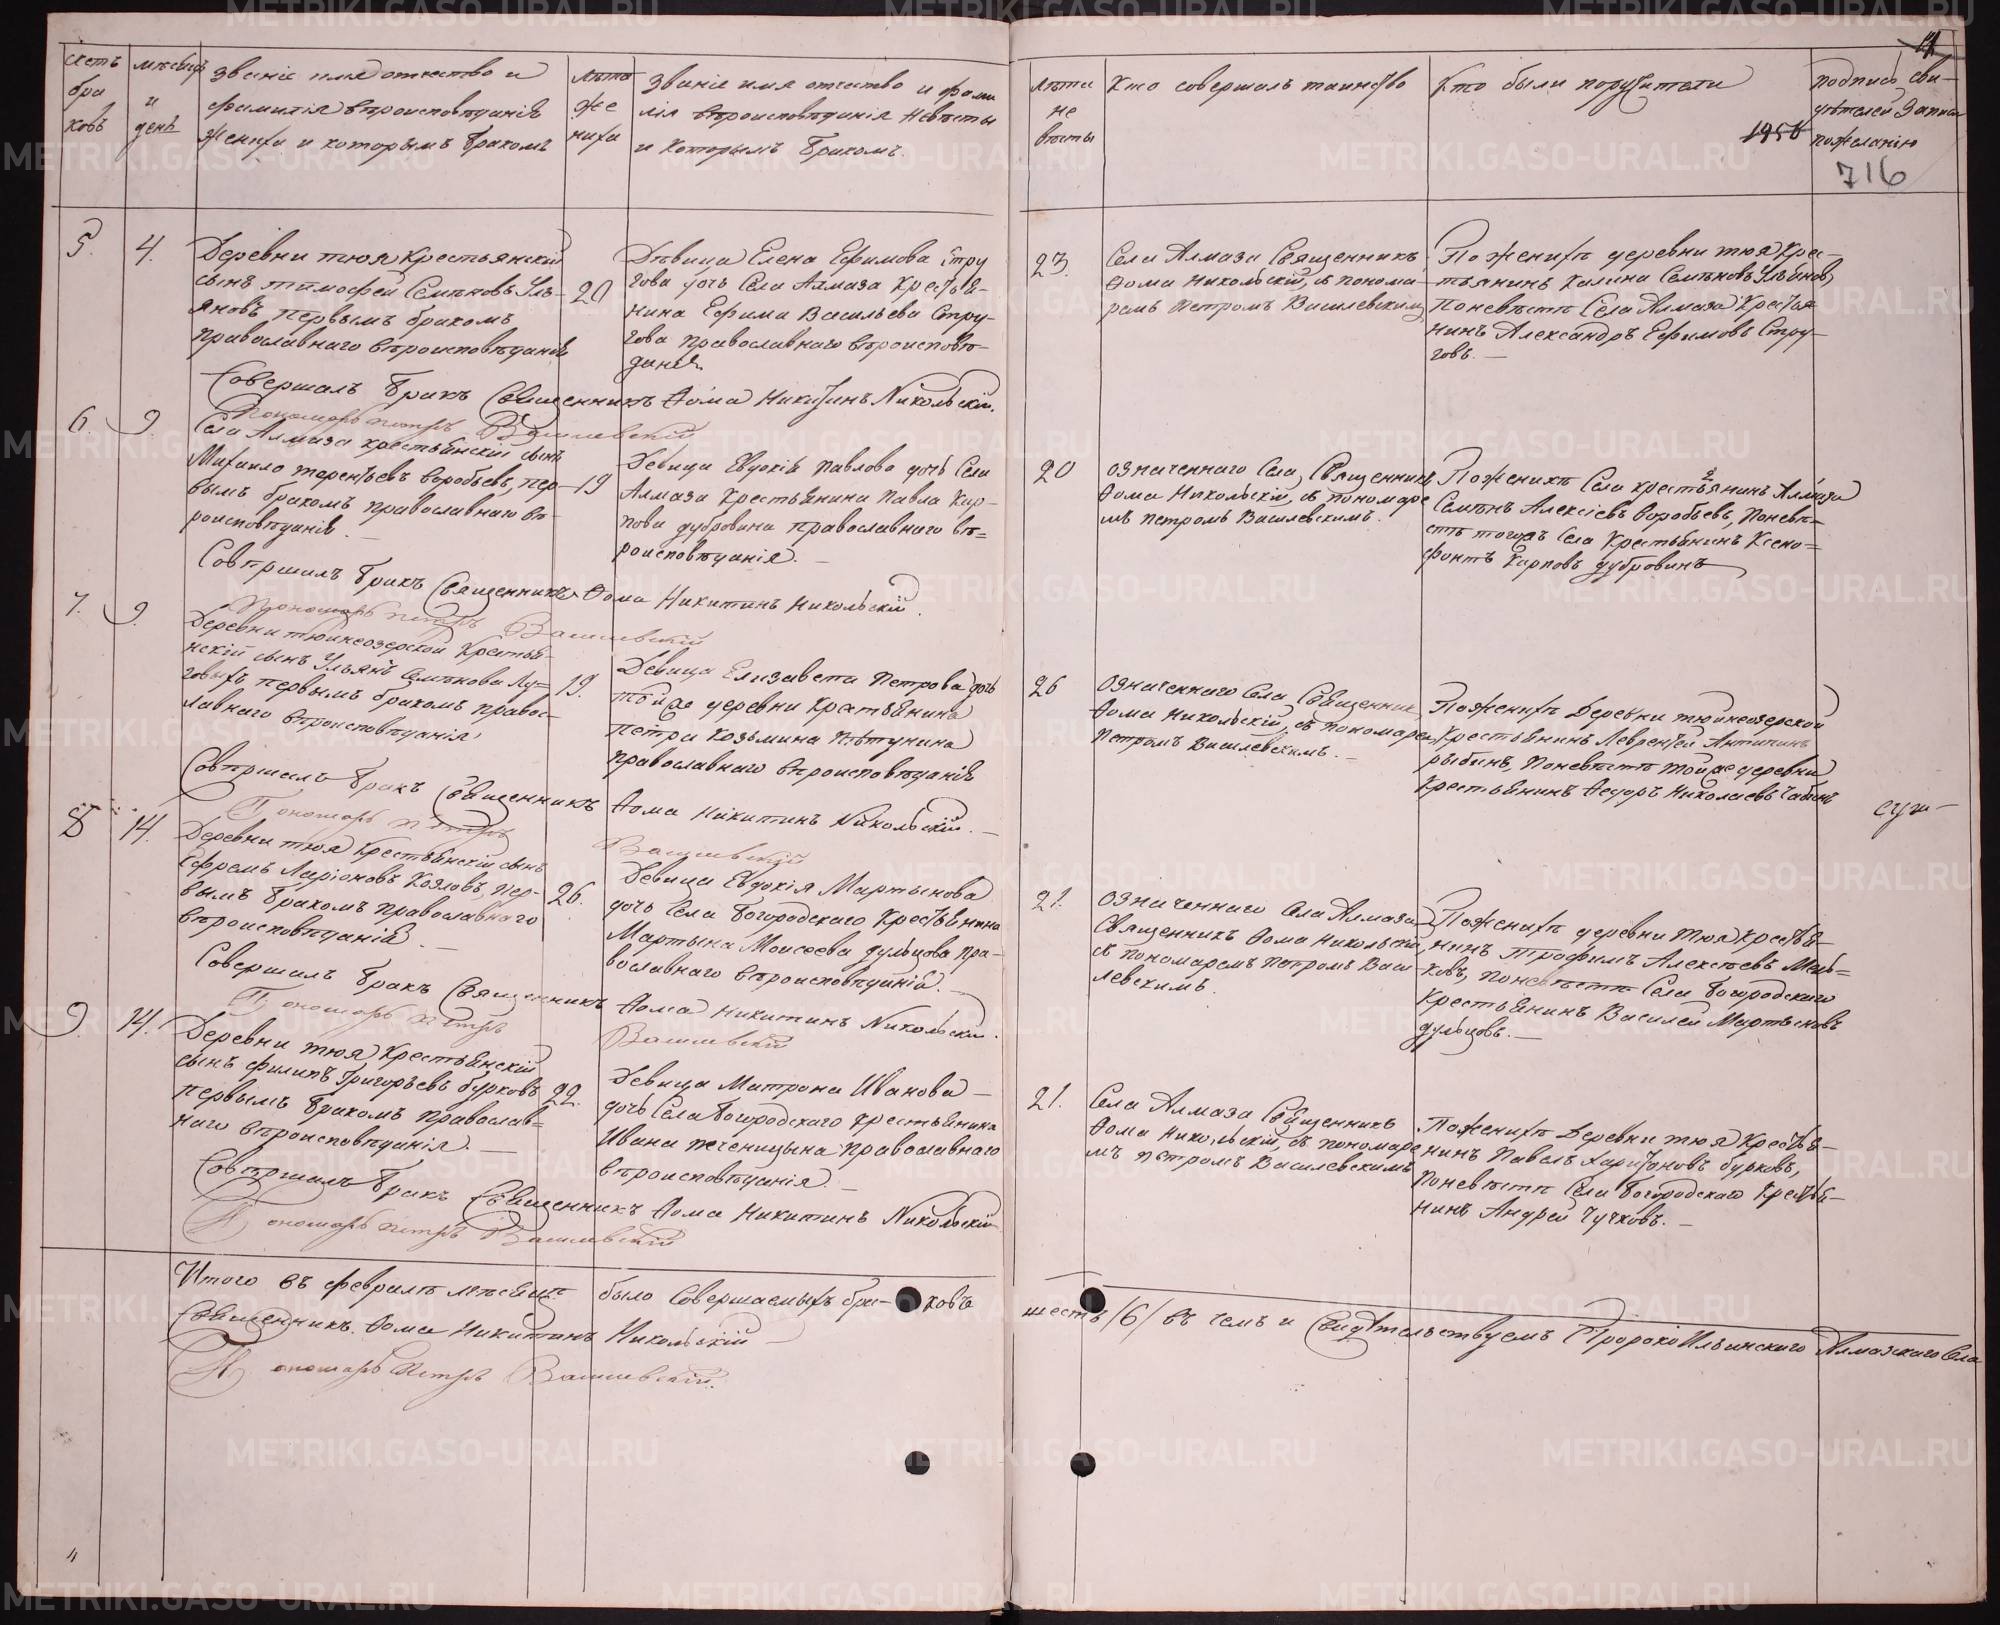 счетъ
бра
ковъ
мѣсяцъ
и
день
Званіе имя отчество и
фамилія вѣроисповѣданія
жениха и которымъ бракомъ
лѣта
же
ниха
Званіе имя отчество и фами
лія вѣроисповѣданія невѣсты
и которымъ бракомъ.
лѣта
не
вѣсты
Кто совершалъ таинство
Кто были поручители
подпись сви-
дѣтелей записи
пожеланію
1956
716
5.
4.
Деревни тюя крестьянскій
сынъ тимофей Семѣновъ Уль-
яновъ, первымъ бракомъ
православнаго вѣроисповѣданія
20
Дѣвица Елена Ефимова Стру
гова дочь Села Алмаза Крестья-
нина Ефима Васильева Стру-
гова православнаго вѣроисповѣ-
данія
23.
Села Алмаза Священникъ
Ѳома Никольскій, съ понома-
ремъ Петромъ Василевскимъ
Поженихѣ деревни тюя крес-
тьянинъ Калина Семѣновъ Ульяновъ,
Поневѣстѣ Села Алмаза Крестья
нинъ Александръ Ефимовъ Стру-
говъ. —
Совершалъ бракъ Священникъ Ѳома Никитинъ Никольскій.
Пономарь Петръ Василевскій
6.
9.
Села Алмаза крестьянскій сынъ
Михаило терентьевъ Воробьевъ, пер-
вымъ бракомъ православнаго вѣ-
роисповѣданія. —
19
Девица Евдокія Павлова дочь Села
Алмаза Крестьянина Павла Кар-
пова дубровина православнаго вѣ=
роисповѣданія. —
20
означеннаго Села, Священникъ
Ѳома Никольскій, съ пономаре
мъ Петромъ Василевскимъ.
Поженихѣ Села крестьянинъ Алмаза
Семѣнъ Алексѣевъ Воробьевъ, Поневѣ=
стѣ тогожъ Села Крестьянинъ Ксено=
фонтъ Карповъ дубровинъ
Совпршилъ бракъ Священникъ Ѳома Никитинъ Никольскій.
Пономарь Петръ Василевскій
7.
9.
Деревни тюинеозерской Крестья-
нскій сынъ Ульянъ Семѣнова Лу=
говыхъ первымъ бракомъ правос-
лавнаго вѣроисповѣданія
19.
Девица Елизавета Петрова дочь
тойже деревни Кратьянина
Петра Козьмина Пѣтунина
православнаго вѣроисповѣданія
26
означеннаго Села Священникъ,
Ѳома Никольскій, съ пономаремъ
Петромъ Василевскимъ. —
Поженихѣ Деревни тюинеозерской
Крестьянинъ Леврентей Антипинъ
рыбинъ, Поневѣстѣ тойже деревни
Крестьянинъ Ѳедоръ Николаевъ Чабинъ
Совпршалъ бракъ Священникъ Ѳома Никитинъ Никольскій. —
Пономарь Петръ Василевскій
8
14.
Деревни тюя крестьянскій сынъ
Ефремъ Ларіоновъ Козловъ, пер-
вымъ бракомъ православнаго
вѣроисповѣданія. —
26.
Девица Евдокія Мартынова
дочь Села Богородскаго Крестьянина
Мартына Моисеева дульцова пра-
вославнаго вѣроисповѣданія. —
21.
означеннаго Села Алмаза
Священникъ Ѳома Никольскій,
съ пономаремъ Петромъ Васи-
левскимъ.
Поженихѣ деревни тюя крестья-
нинъ Трофимъ Алексѣевъ Маль=
ковъ, поневѣстѣ Села Богородскаго
Крестьянинъ Василей Мартыновъ
дульцовъ. —
Совершалъ бракъ Священникъ Ѳома Никитинъ Никольскій.
Пономарь Петръ Василевскій
9.
14.
Деревни тюя Крестьянскій
сынъ филипъ Григорьевъ бурковъ
первымъ бракомъ православ=
наго вѣроисповѣданія. —
22.
Девица Матрона Иванова —
дочь Села Богородскаго крестьянина
Ивана печеницына православнаго
вѣроисповѣданія. —
21.
Села Алмаза Священникъ
Ѳома Никольскій, съ пономаре
мъ Петромъ Василевскимъ
Поженихѣ Деревни тюя Крестья-
нинъ Павелъ Харитоновъ бурковъ,
Поневѣстѣ Села Богородскаго Крестья-
нинъ Андрей Чучковъ. —
Совпршалъ бракъ Священникъ Ѳома Никитинъ Никольскій
Пономарь Петръ Василевскій
Итого въ февралѣ мѣсяцѣ было Совершаемыхъ бра-ковъ
шесть /6/ въ чемъ и Свидѣтельствуемъ Пророко Ильинскаго Алмазскаго Села
Священникъ. Ѳома Никитинъ Никольскій —
Пономарь Петръ Василевскій.
METRIKI.GASO-URAL.RU